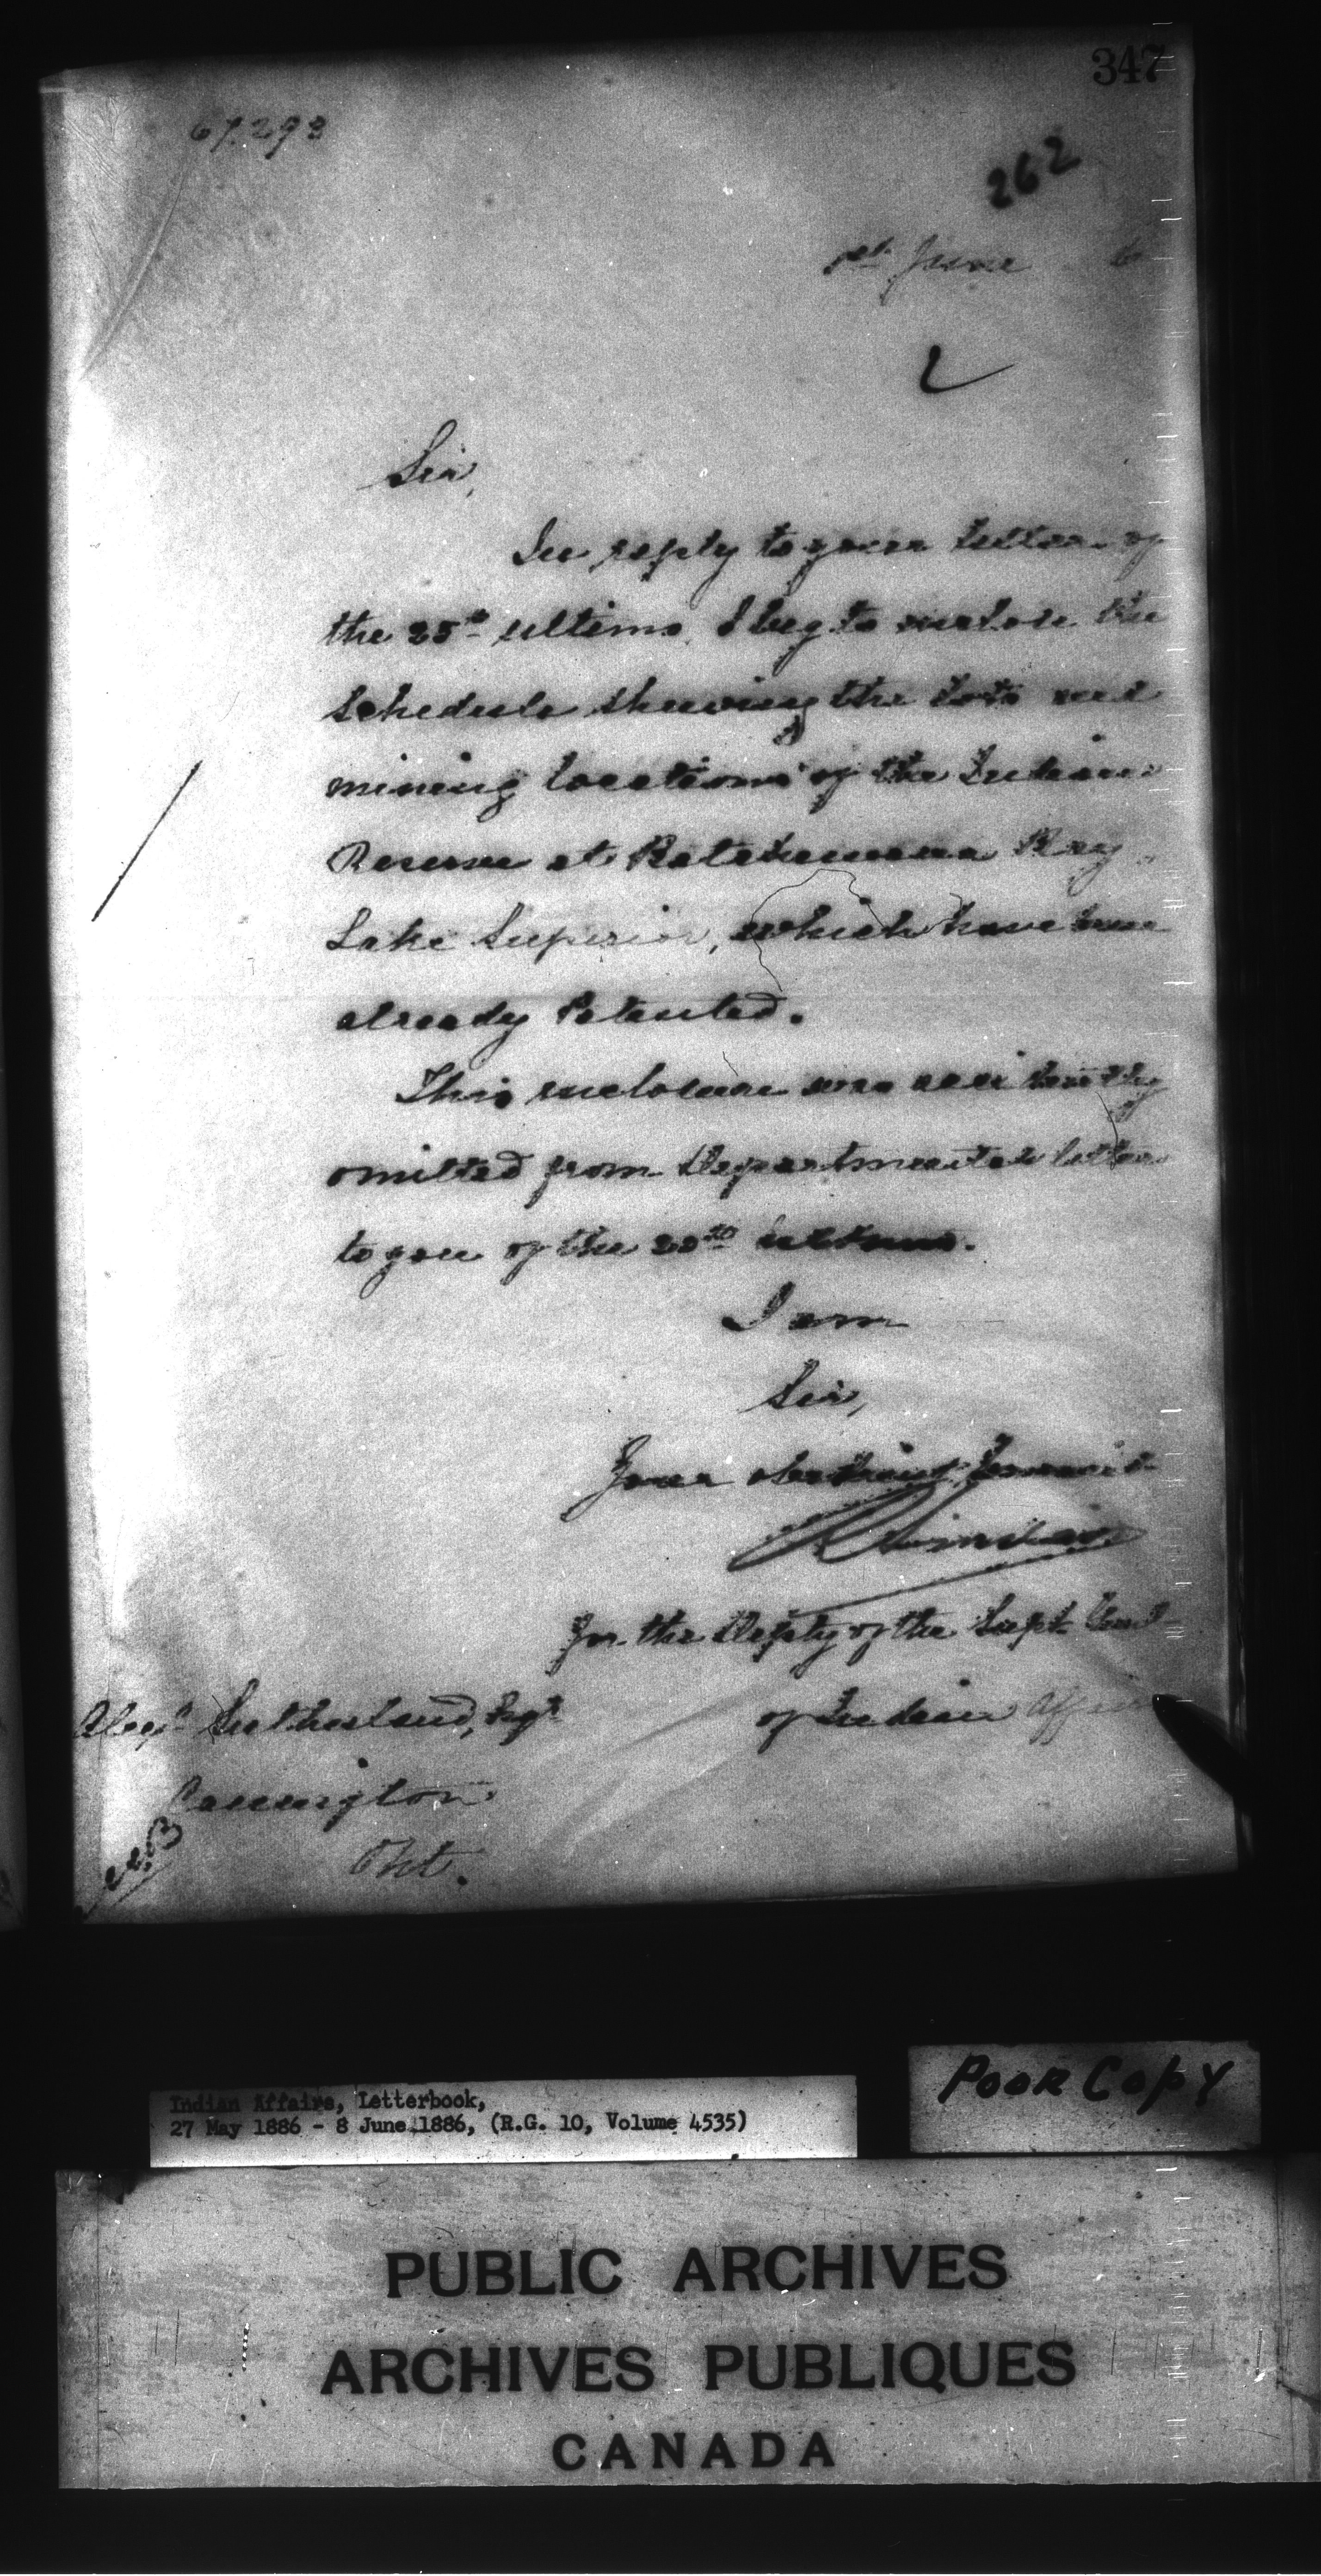 347
67.293
262
1st June 6
Sir,
In reply to your letter of
the 25th ultimo, I beg to enclose the
schedule shewing the lots and
mining locations of the Indian
Reserve at Batchewana Bay,
Lake Superior, which have been
already Patented.
This enclosure was accidently
omitted from Departmental letter
to you of the 20th ultimo.
I am
Sir,
Your obedient Servant
R Sinclair
for the Depty of the Supt. Genl
of Indian Affairs
Alexr Sutherland, Esqr
Cannington
Ont.
Indian Affairs, Letterbook,
27 May 1886 - 8 June 1886, (R.G. 10, Volume 4535)
POOR COPY
PUBLIC ARCHIVES
ARCHIVES PUBLIQUES
CANADA